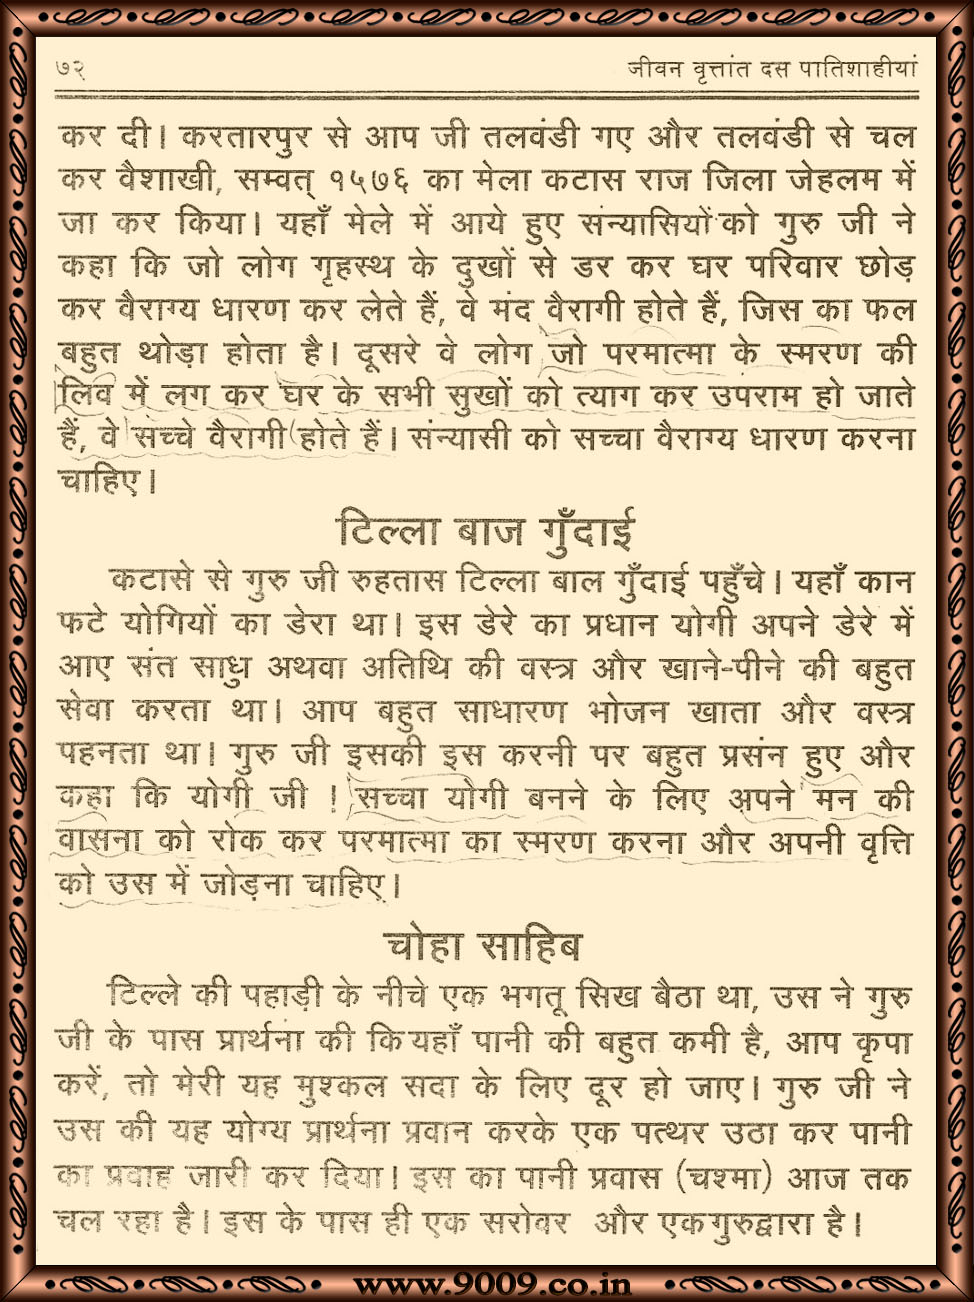 ७२ जीवन वृत्तांत दस पातिशाहीयां
कर दी। करतारपुर से आप जी तलवंडी गए और तलवंडी से चल
कर वैशाखी, सम्वत् १५७६ का मेला कटास राज जिला जेहलम में
जा कर किया। यहाँ मेले में आये हुए संन्यासियों को गुरु जी ने
कहा कि जो लोग गृहस्थ के दुखों से डर कर घर परिवार छोड़
कर वैराग्य धारण कर लेते हैं, वे मंद वैरागी होते हैं, जिस का फल
बहुत थोड़ा होता है। दूसरे वे लोग जो परमात्मा के स्मरण की
लिव में लग कर घर के सभी सुखों को त्याग कर उपराम हो जाते
हैं, वे सच्चे वैरागी होते हैं। संन्यासी को सच्चा वैराग्य धारण करना
चाहिए।
टिल्ला बाज गुँदाई
कटासे से गुरु जी रुहतास टिल्ला बाल गुँदाई पहुँचे। यहाँ कान
फटे योगियों का डेरा था। इस डेरे का प्रधान योगी अपने डेरे में
आए संत साधु अथवा अतिथि की वस्त्र और खाने-पीने की बहुत
सेवा करता था। आप बहुत साधारण भोजन खाता और वस्त्र
पहनता था। गुरु जी इसकी इस करनी पर बहुत प्रसंन हुए और
कहा कि योगी जी ! सच्चा योगी बनने के लिए अपने मन की
वासना को रोक कर परमात्मा का स्मरण करना और अपनी वृत्ति
को उस में जोड़ना चाहिए।
चोहा साहिब
टिल्ले की पहाड़ी के नीचे एक भगतू सिख बैठा था, उस ने गुरु
जी के पास प्रार्थना की कि यहाँ पानी की बहुत कमी है, आप कृपा
करें, तो मेरी यह मुश्कल सदा के लिए दूर हो जाए। गुरु जी ने
उस की यह योग्य प्रार्थना प्रवान करके एक पत्थर उठा कर पानी
का प्रवाह जारी कर दिया। इस का पानी प्रवास (चश्मा) आज तक
चल रहा है। इस के पास ही एक सरोवर और एक गुरुद्वारा है।
www.9009.co.in